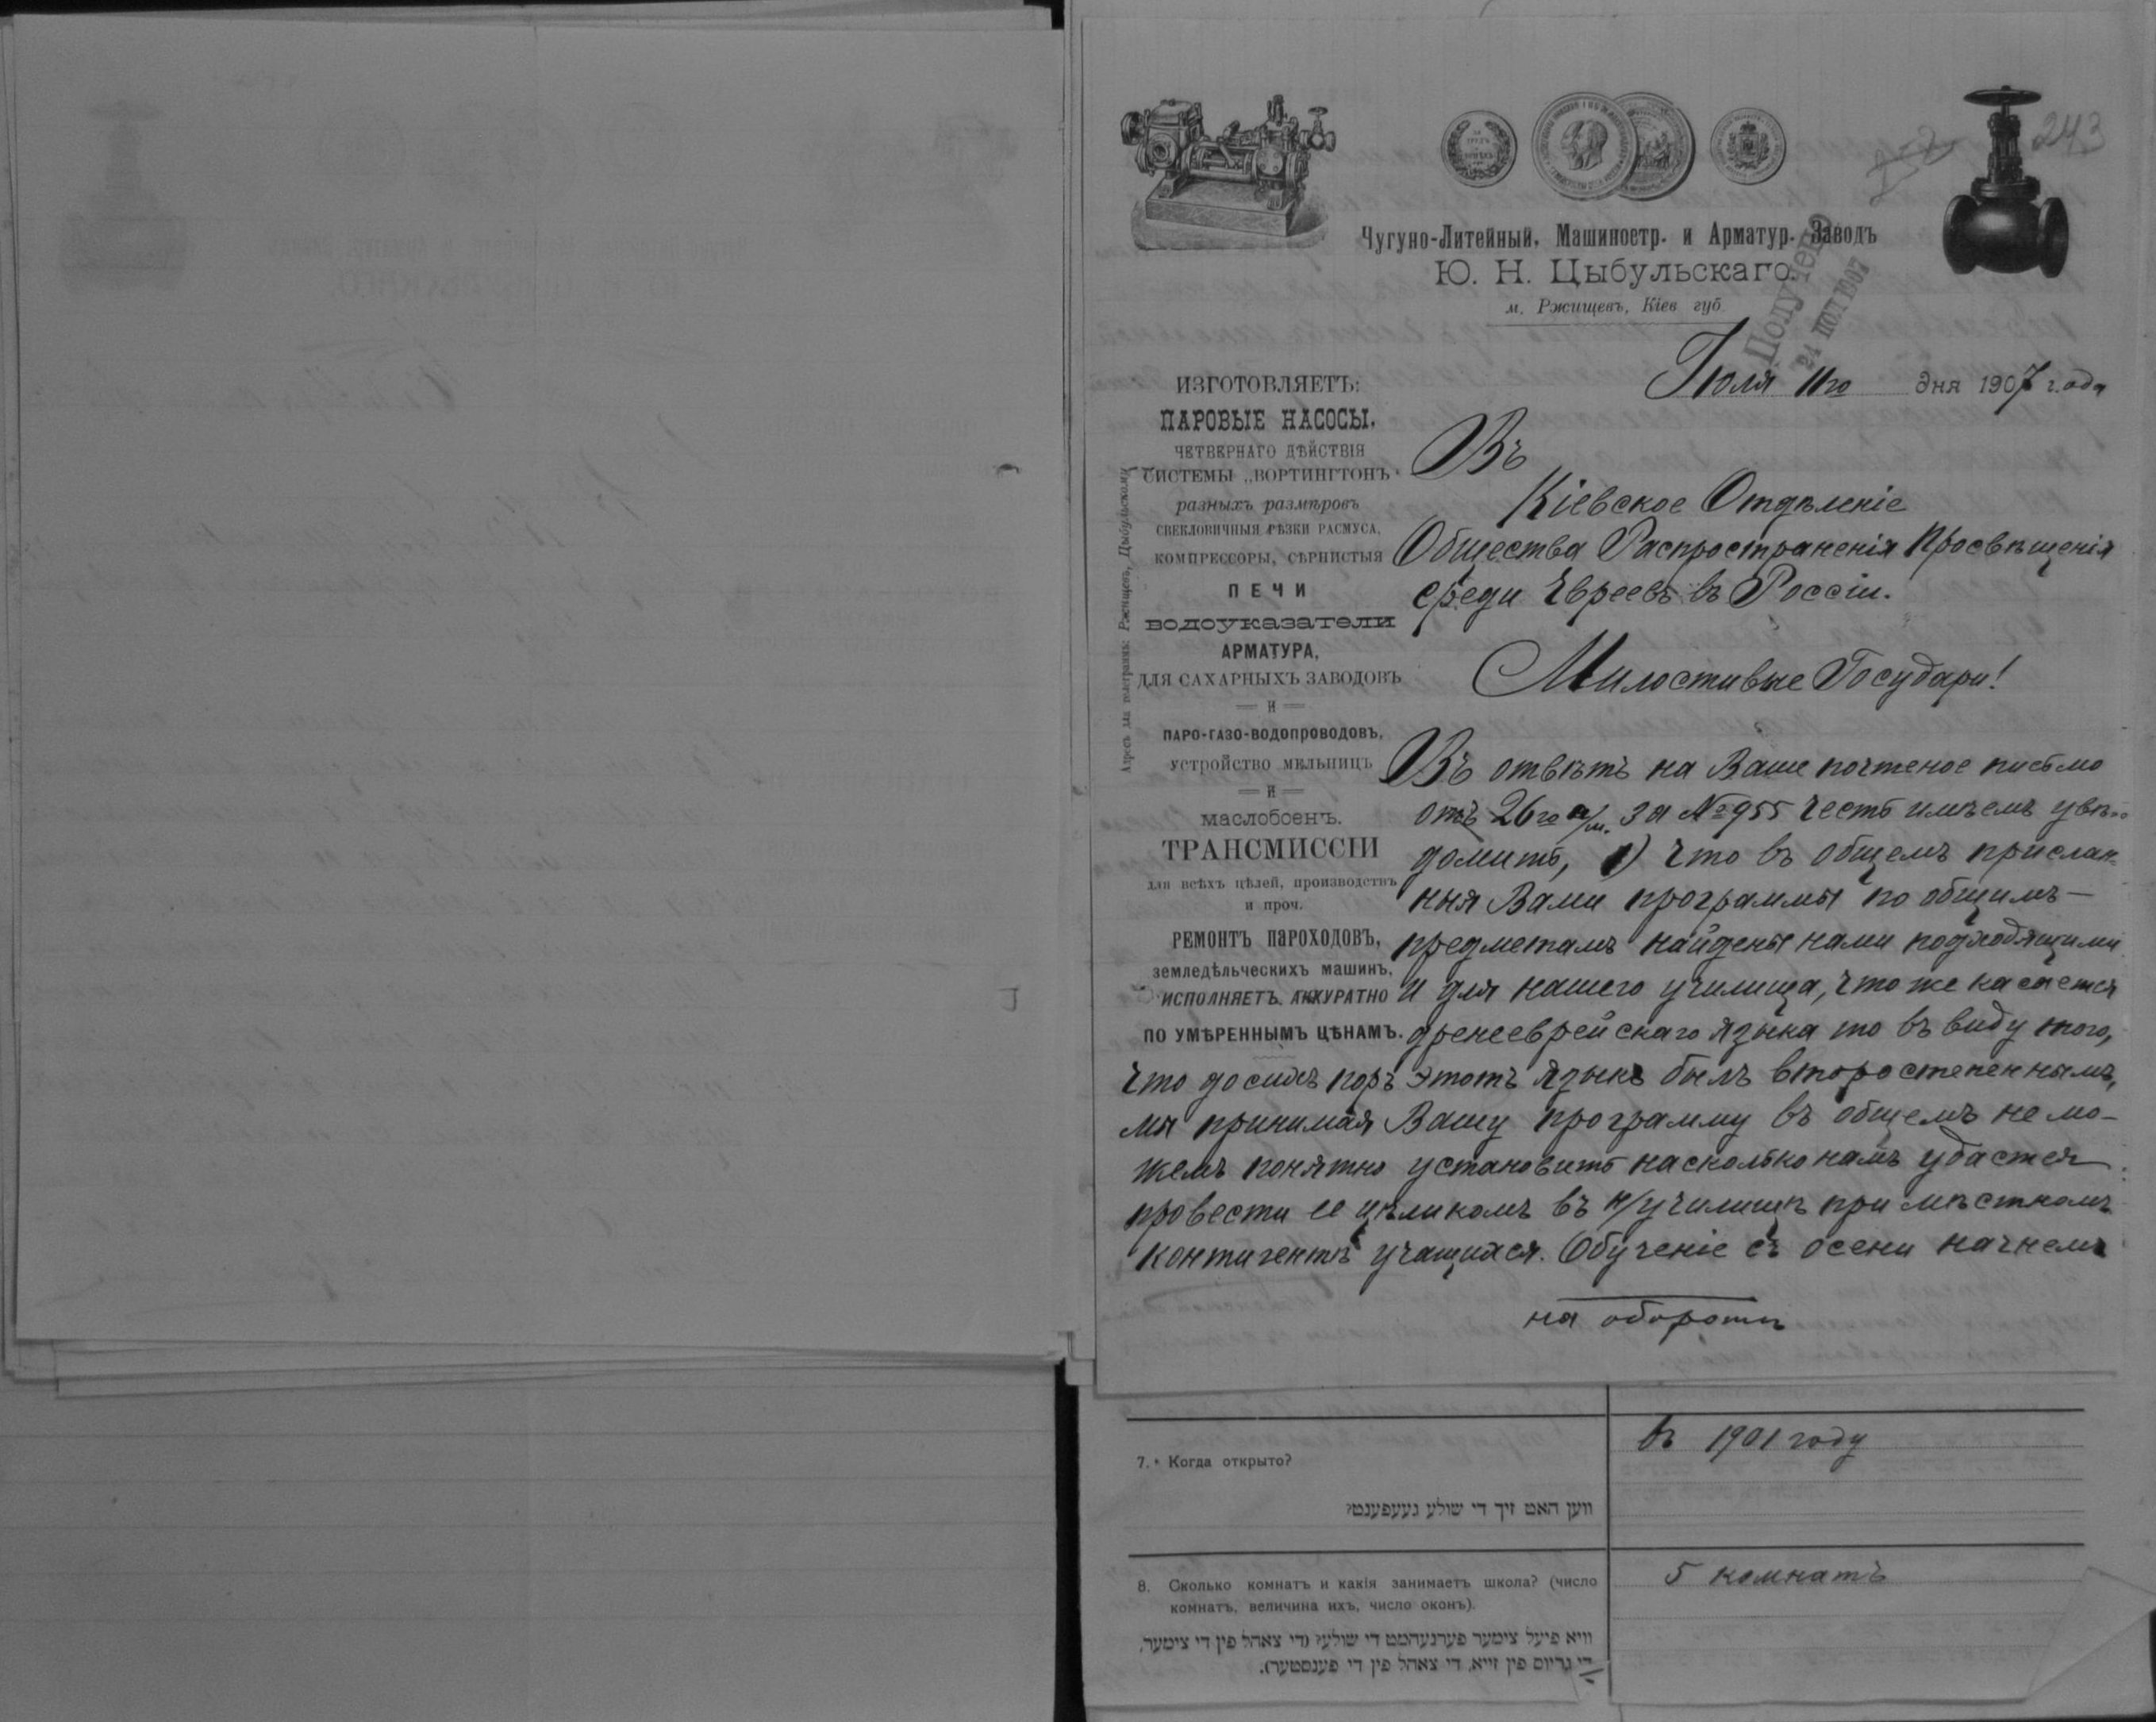 243
Чугуно-Литейный, Машиностр. и Арматур. Заводъ
Ю. Н. Цыбульскаго
м. Ржищевъ, Кіев губ.
Получено
21 ІЮЛ 1907
Іюля 11го дня 1907 г.ода
ИЗГОТОВЛЯЕТЪ:
ПАРОВЫЕ НАСОСЫ.
ЧЕТВЕРНАГО ДѢЙСТВІЯ
СИСТЕМЫ „ВОРТИНГТОНЪ"
разныхъ размѣровъ
СВЕКЛОВИЧНЫЯ РѢЗКИ РАСМУСА,
КОМПРЕССОРЫ, СѢРНИСТЫЯ
ПЕЧИ
ВОДОУКАЗАТЕЛИ
АРМАТУРА,
ДЛЯ САХАРНЫХЪ ЗАВОДОВЪ
— И —
ПАРО-ГАЗО-ВОДОПРОВОДОВЪ,
УСТРОЙСТВО МЕЛЬНИЦЪ
— И —
маслобоенъ.
ТРАНСМИССІИ
для всѣхъ цѣлей, производствъ
и проч.
РЕМОНТЪ ПАРОХОДОВЪ,
земледѣльческихъ машинъ,
ИСПОЛНЯЕТЪ АККУРАТНО
ПО УМѢРЕННЫМЪ ЦѢНАМЪ.
Адресъ для телеграммъ: Ржищевъ, Цыбульскому
Въ
Кіевское Отдѣленіе
Общества Распространенія Просвѣщенія
среди Евреевъ въ Россіи.
Милостивые Государи!
Въ отвѣтъ на Ваше почтеное письмо
отъ 26го п/м. за №955 честь имѣемъ увѣ-
домить, 1) Что въ общемъ прислан-
ныя Вами программы по общимъ—
предметамъ найдены нами подходящими
и для нашего училища, что же касается
дренееврейскаго языка то въ виду того,
что до сихъ поръ этотъ языкъ былъ второстепеннымъ,
мы принимая Вашу программу въ общемъ не мо-
жемъ понятно установить насколько намъ удастся
провести ее цѣликомъ въ н/училищѣ при мѣстномъ
контигентѣ учащихся. Обученіе съ осени начнемъ
на оборотѣ
7. Когда открыто?
ווען האט זיך די שולע געעפענט?
въ 1901 году
8. Сколько комнатъ и какія занимаетъ школа? (число
комнатъ, величина ихъ, число оконъ).
וויא פיעל צימער פערנעהמט די שולע? (די צאהל פין די צימער,
די גרויס פין זייא, די צאהל פין די פענסטער).
5 комнатъ